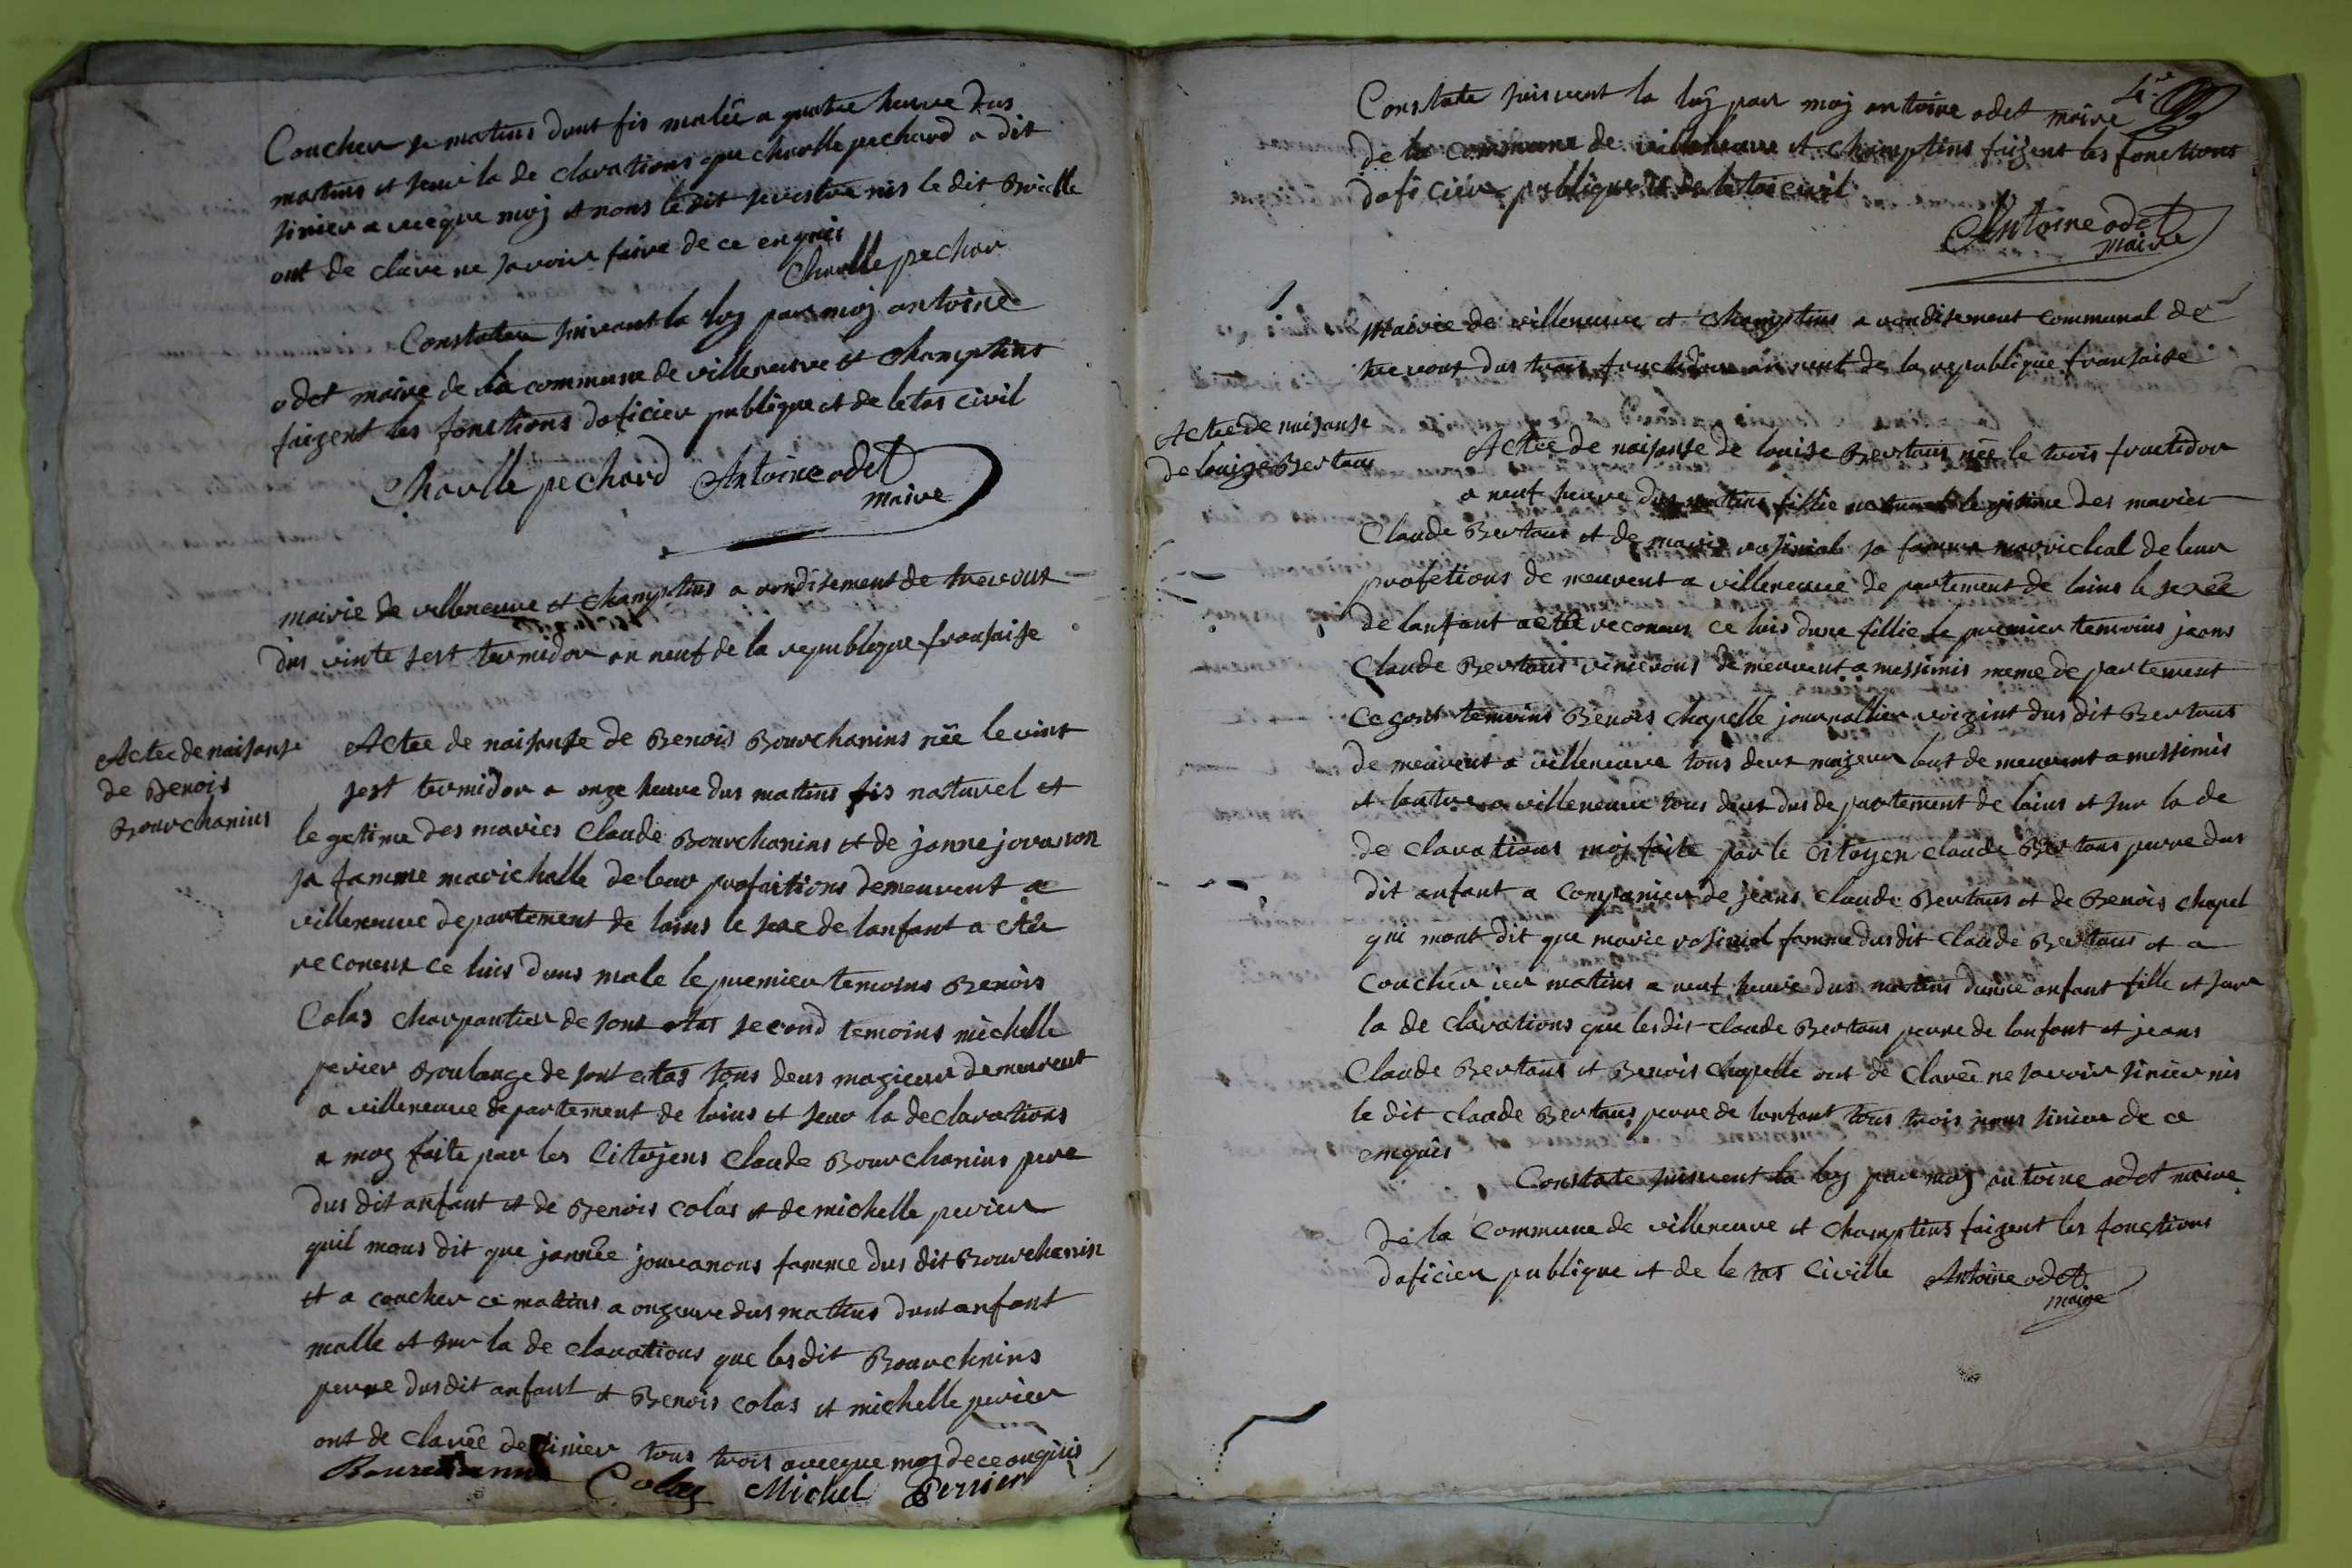 Coucher se matins dunt fis malée a quatre heure dus
matins et seur la de clarations que charlle pechard a dit
sinier avecque moj et nons le dit servestre nis le dit
ont de clare ne savoir faire de ce enquis
Charlle pechar
Constater suivant la loy par moj antoine
odet maire de la commune de villeneuve et champtins
faizent les fonctions doficier publique et de letas civil
Charlle pechard Antoine odet
maire
mairie de villeneuve et champtins a rondisement de trevous
dus vinte sest termidor an neuf de la republique fransaise
Actee de naisanse
de Benois
Bourchanins
Actee de naisanse de Benois Bourchanins née le vint
sest termidor a onze heure dus matins fis naturel et
le getime des maries Claude Bourchanins et de janne jovanon
sa famme marichalle de leur profaitions demeurent a
villeneuve departement de lains le sexe de lanfant a etée
reconeus ce luis duns male le premier temoins Benois
Colas charpantier de sont etas second temoins michelle
perier Boulange de sont etas tous deus magieur demeurent
a villeneuve departement de lains et seur la declarations
a moy faite par les Citojens Claude Bourchanins pere
dus dit anfant et de Benois colas et de michelle perier
quil mons dit que jannée jouvanons famme dus dit Bourchanin
et a coucher ce matins a onzeure dus matins dunt anfant
malle et sur la de clarations que lesdit Bourchnins
perre dusdit anfant et Benois colas et michelle perier
ont de clarée de sinier tous trois avecque moj de ce anquis
Colas Michel Perrier
Constate suisvent la loy par moj antoine odet maire
de la commune de villeneuve et champtins faizent les fonctions
doficier publique et de letas civil
Antoine odet
maire
Mairie de villeneuve et champtins a rondisement communal de
trevous dus trois fructidor an neuf de la republique fransaise
Actee de naisanse
de louize Bertous
Actee de naisanse de louise Bertous née le trois fructidor
a neuf heure dus matins fillie naturel le gitime des maries
Claude Bertous et de marie sa famme marrichal de leur
profetions de meurent a villeneuve de partement de lains le sexée
de lanfant a etée reconeus ce luis dune fillie le premier temoins jeans
Claude Bertous vinierons demeurent a messimis meme de partement
ce gont temoins Benois chapelle journallier voizint dus dit Bertous
de meurent a villeneuve tous deus mazeur lust de meurent a messimis
et lautre a villeneuve tous deus dus de partement de lains et sur la de
de clarations moj faite par le Citoyen Claude Bertous perre dus
dit anfant a companier de jeans Claude Bertous et de Benois chapel
qui mont dit que marie famme dus dit Claude Bertous et a
coucher ier matins a neuf heure dus matins dunne anfant fille et sur
la de clarations que lesdit Claude Bertous perre de lanfant et jeans
Claude Bertous et Benois chapelle ont de clarée ne savoir sinier nis
le dit Claude Bertous perre de lanfant tous trois nons sinier de ce
enquis
Constate suisvent la loy par moj antoine odet maire
de la commune de villeneuve et champtins faizent les fonctions
doficier publique et de le tas Civille Antoine odet
maire